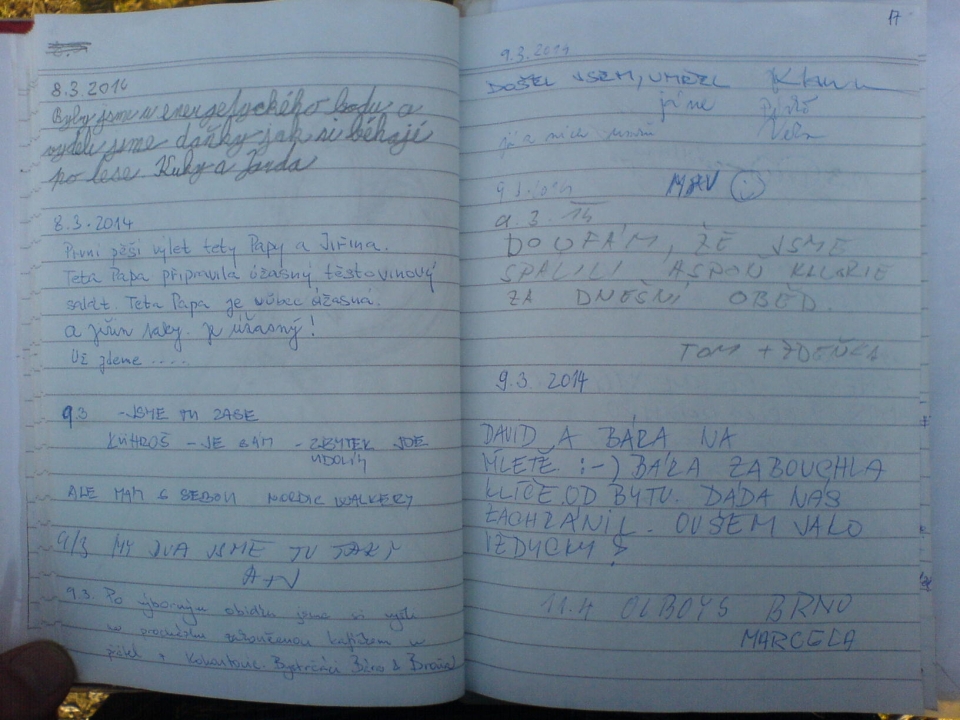 8.3.2014
Byly jsme u energetyckého bodu a
vydeli jsme daňky jak si běhají
po lese Kuky a Jarda
8.3.2014
První pěší výlet tety Papy a Jiřina.
Teta Papa připravila úžasný těstovinový
salát. Teta Papa je vůbec úžasná.
a jiřin taky je úžasný!
Už jdeme ....
9.3 -JSME TU ZASE
KUHROŠ - JE SÁM - ZBYTEK JDE
ÚDOLÍM
ALE MÁM S SEBOU NORDIC WALKERY
9/3 MY DVA JSME TU TAKY
A+V
9.3. Po výborným obídku jsme si vyšli
na procházku zakončenou kafíčkem v
17
9.3.2014
DOŠEL JSEM, UMŘEL
já ne
já a nich
9.3.2014
9.3.14
DOUFÁM, ŽE JSME
SPÁLILI ASPOŇ KALORIE
ZA DNEŠNÍ OBĚD.
TOM + ZDEŇKA
9.3. 2014
DAVID A BÁRA NA
VÝLETĚ :-) BÁRA ZABOUCHLA
KLÍČE OD BYTU. DÁDA NÁS
ZACHRÁNIL. OVŠEM JAKO
VŽDYCKY
11.4 OLBOYS BRNO
MARCELA